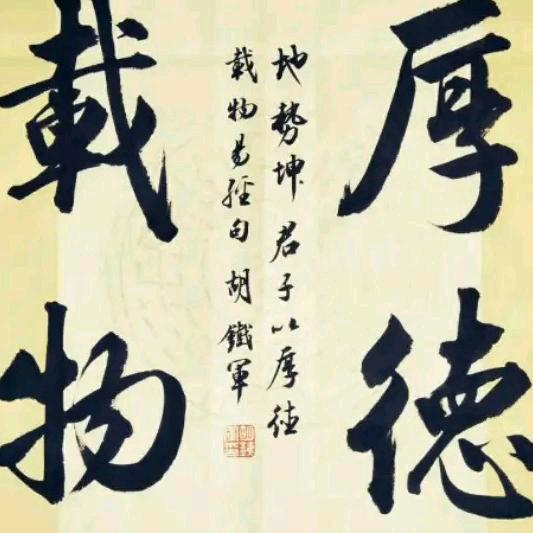 厚德
地勢坤君子以厚德
載物易經句胡鐵軍
載物